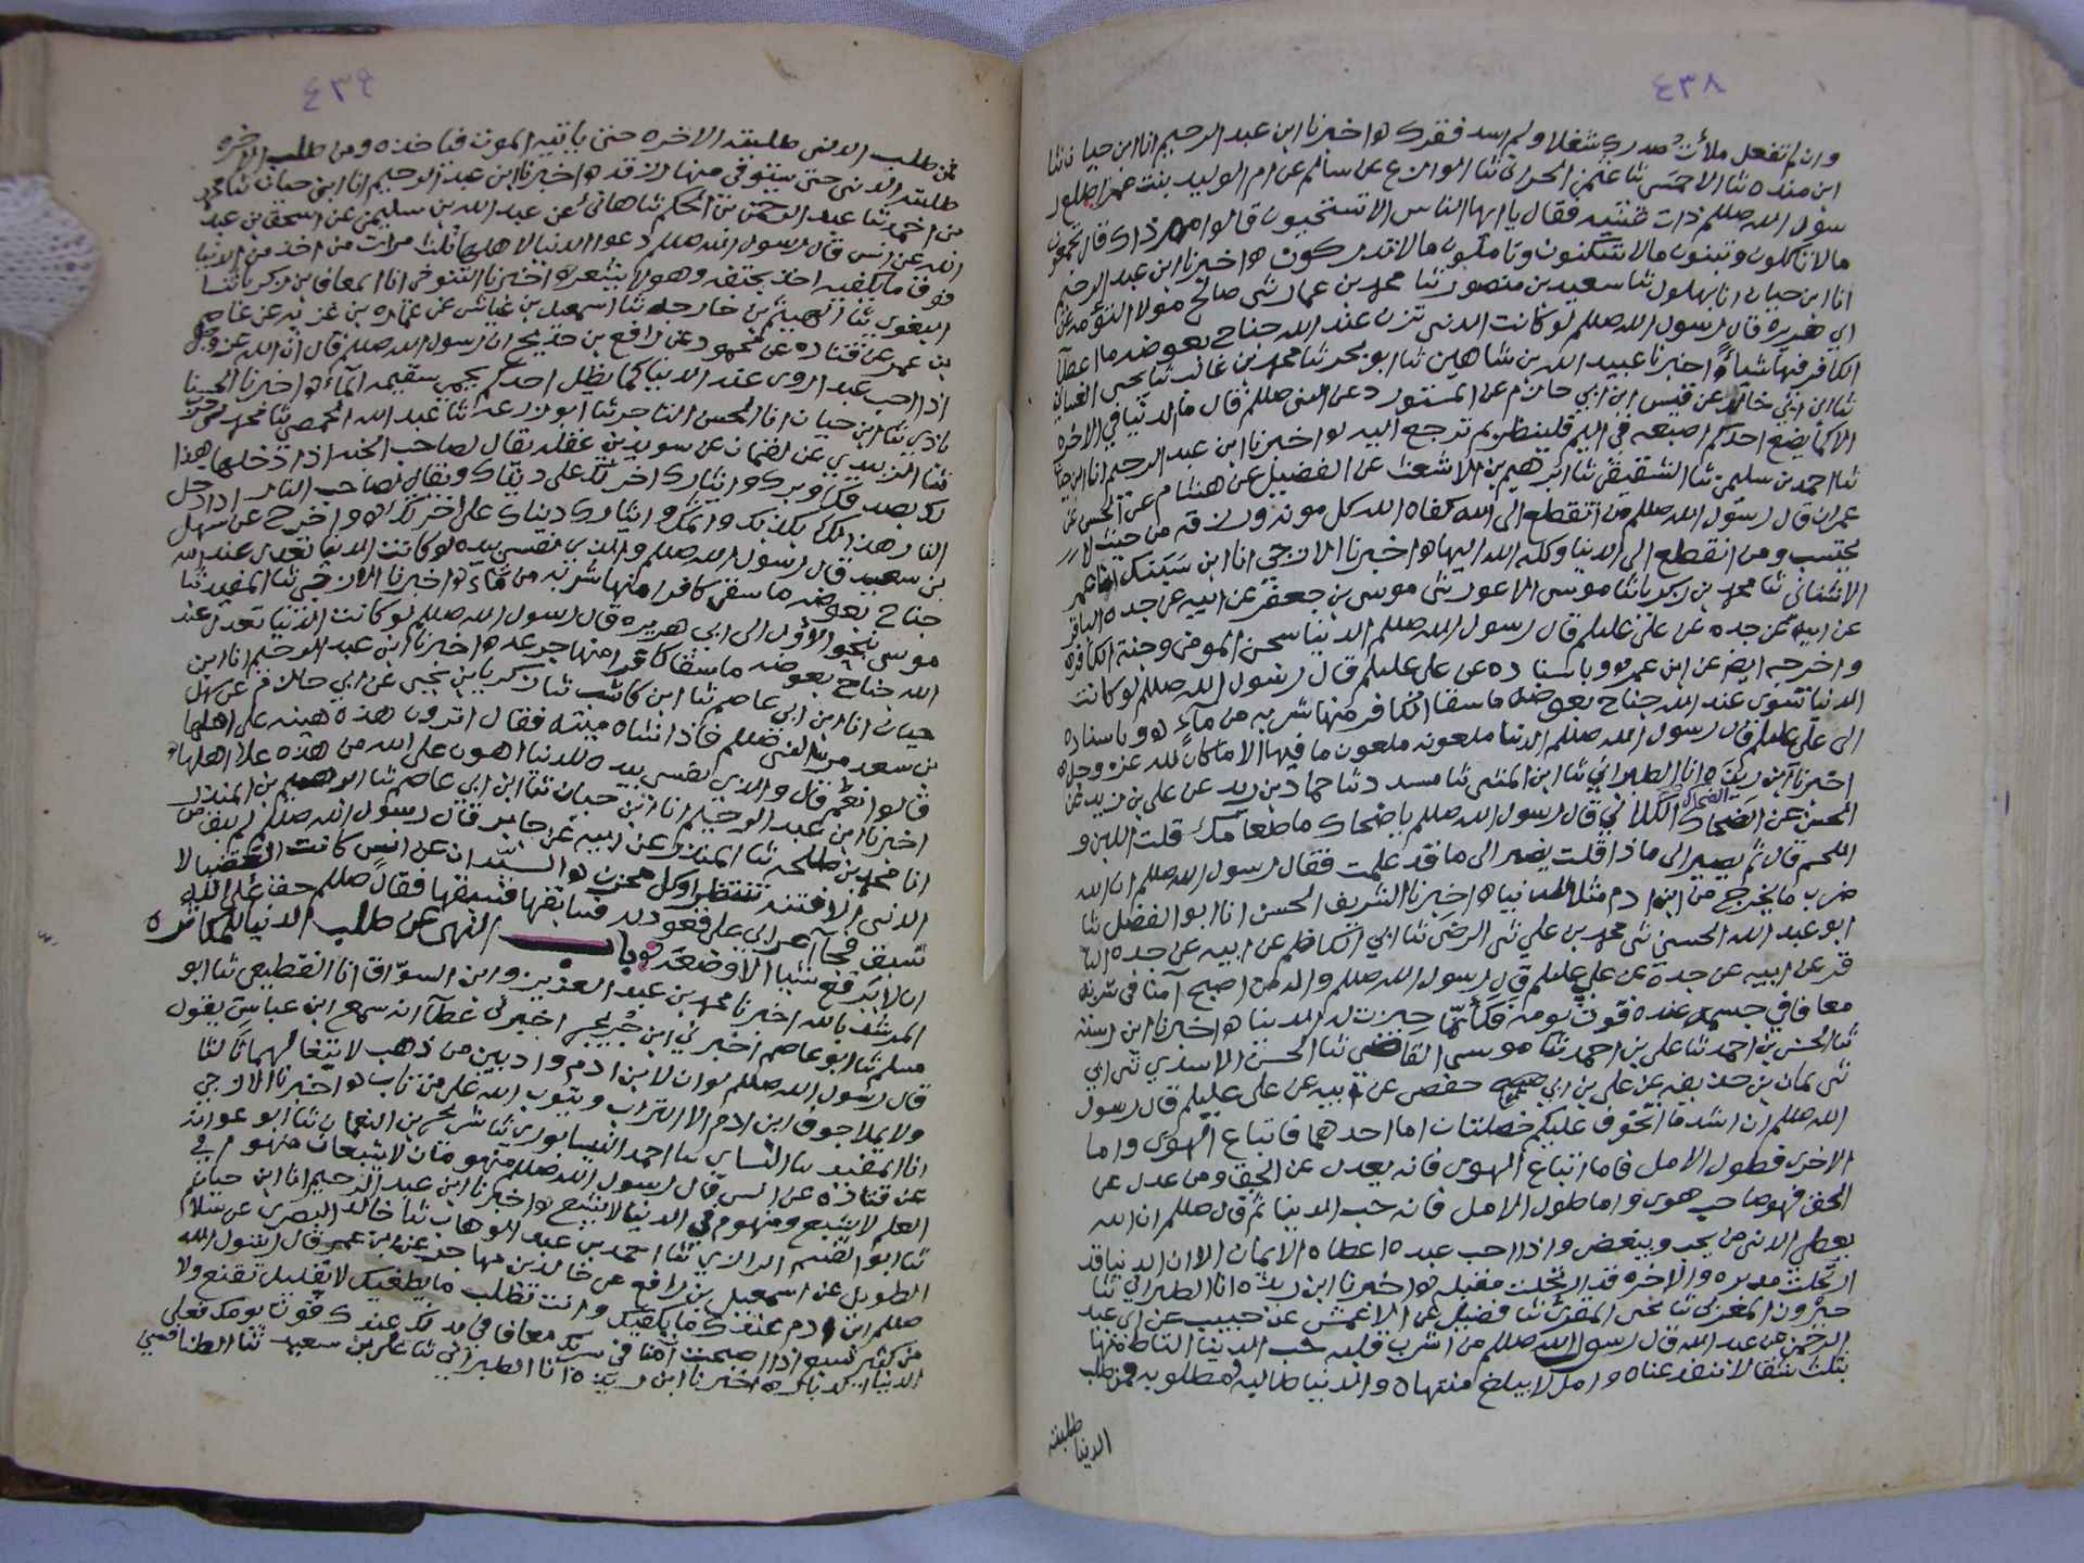 ٤٣٨
وان لم تفعل ملأت صدرك شغلا ولم اسد فقرك ه اخبرنا ابن عبد الرحيم انا ابن حيان ثنا
ابن منده ثنا الاحمسي ثنا عثمن الحراني ثنا الوازع عن سالم عن ام الوليد بنت عمر اطلع ر
سول الله صللم ذات عشيه فقال يا ايها الناس الا تستحيون قالوا مم ذاك قال تجمعون
مالا تاكلون وتبنون مالا تسكنون وتاملون مالا تدركون ه اخبرنا ابن عبد الرحيم
انا ابن حيان انا بهلول ثنا سعيد بن منصور ثنا محمد بن عمار ثنى صالح مولا التؤمه عن
ابي هريره قال رسول الله صللم لو كانت الدنى تزن عند الله جناح بعوضه ما اعطا
الكافر فيها شياء ه اخبرنا عبيد الله بن شاهين ثنا ابو بحر ثنا محمد بن غالب ثنا يحيى الغساني
ثنا ابن ابي خالد عن قيس ابن ابي حازم عن المستورد عن النبى صللم قال ما الدنيا في الاخره
الا كما يضع احدكم اصبعه في اليم فلينظر بم ترجع اليه ه اخبرنا ابن عبد الرحيم انا ابن حيا
ثنا احمد بن سليمن ثنا الشقيقي ثنا ابرهيم بن الاشعث عن الفضيل عن هشام عن الحسن عن
عمران قال رسول الله صللم من انقطع الى الله كفاه الله كل مونه ورزقه من حيث لا
يحتسب ومن انقطع الى الدنيا وكله الله اليها ه اخبرنا الازجي انا ابن سبنك
الاشناني ثنا محمد بن زكريا ثنا موسى الاعور ثنى موسى بن جعفر عن ابيه عن جده الباقر
عن ابيه عن جده عن علي عليلم قال رسول الله صللم الدنيا سجن المومن وجنة الكافر ه
واخرجه ايض عن ابن عمر ه وباسناده عن علي عليلم قال رسول الله صللم لو كانت
الدنيا تسوى عند الله جناح بعوضه ما سقا الكافر منها شربه من ماء ه وباسناده
الى علي عليلم قال رسول الله صللم الدنيا ملعونه ملعون ما فيها الا ما كان لله عز وجل ه
اخبرنا ابن ريذه انا الطبراني ثنا ابن المثنى ثنا مسدد ثنا حماد بن زيد عن علي بن زيد عن
الحسن عن الضحاك الكلابي قال رسول الله صللم يا ضحاك ما طعامك قلت اللبن و
اللحم قال ثم يصير الى ماذا قلت يصير الى ما قد علمت فقال رسول الله صللم ان الله
ضرب ما يخرج من ابن ادم مثلا للدنيا ه اخبرنا الشريف الحسن انا ابو الفضل ثنا
ابو عبد الله الحسيني ثنى محمد بن علي ثنى الرضى ثنا ابي الكاظم عن ابيه عن جده البا
قر عن ابيه عن جده عن علي عليلم قال رسول الله صللم والله من اصبح آمنا في سربه
معافا في جسمه عنده قوت يومه فكأنما حيزت له الدنيا ه اخبرنا ابن
ثنا الحسن بن احمد ثنا علي بن احمد ثنا موسى القاضي ثنا الحسن الاسدي ثنى ابي
ثنى يمان بن حذيفه عن علي بن ابي حفص عن ابيه عن علي عليلم قال رسول
الله صللم ان اشد ما اتخوف عليكم خصلتان اما احدهما فاتباع الهوى واما
الاخرى فطول الامل فاما اتباع الهوى فانه يعدل عن الحق ومن عدل عن
الحق فهو صاحب هوى واما طول الامل فانه حب الدنيا ثم قال صللم ان الله
يعطي الدنى من يحب ويبغض واذا احب عبده اعطاه الايمان الا ان الدنيا قد
ارتحلت مدبره والاخره قد ارتحلت مقبله ه اخبرنا ابن ريذه انا الطبراني ثنا
جبرون المغربي ثنا يحيى المقري ثنا فضيل عن الاعمش عن حبيب عن ابي عبد
الرحمن عن عبد الله قال رسول الله صللم من اشرب قلبه حب الدنيا التاط منها
بثلث شقا لا ينفد عناه وامل لا يبلغ منتهاه والدنيا طالبه ومطلوبه فمن طلب
الدنيا طلبته
٤٣٩
فمن طلب الدنى طلبته الاخره حتى ياتيه الموت فياخذه ومن طلب الاخره
طلبته الدنى حتى يستوفي منها رزقه ه اخبرنا ابن عبد الرحيم انا ابن حيان ثنا محمد
بن احمد ثنا عبد الرحمن بن الحكم ثنا هانئ عن عبد الله بن سليمن عن اسحق بن عبد
الله عن انس قال رسول الله صللم دعوا الدنيا لاهلها ثلثا مرات من اخذ من الدنيا
فوق ما يكفيه اخذ بحتفه وهو لا يشعر ه اخبرنا التنوخي انا المعافا بن زكريا ثنا
البغوي ثنا الهيثم بن خارجه ثنا اسمعيل بن عياش عن عماره بن غزيه عن عاصم
بن عمر عن قتاده عن محمود عن رافع بن خديج ان رسول الله صللم قال ان الله عز وجل
اذا احب عبد ازوى عنه الدنيا كما يظل احدكم يحمي سقيمه المآء ه اخبرنا الحسنا
باذي ثنا ابن حيان انا الحسن التاجر ثنا ابو زرعه ثنا عبد الله الحمصي ثنا محمد
ثنا الزبيدي عن لقمان عن سويد بن غفله يقال لصاحب الجنه اذا دخلها هذا
لك بصدقك وبرك وايثارك اخرتك على دنياك ويقال لصاحب النار اذا دخل
النار هذا لك بكذبك واثمك وايثارك دنياك على اخرتك ه واخرج عن سهل
بن سعيد قال رسول الله صللم والذي نفسي بيده لو كانت الدنيا تعدل عند الله
جناح بعوضه ما سقى كافرا منها شربه من مآء ه اخبرنا الازجي ثنا المفيد ثنا
موسى بنحو الاول الى ابي هريره قال رسول الله صللم لو كانت الدنيا تعدل عند
الله جناح بعوضه ما سقا كافرا منها جرعه ه اخبرنا ابن عبد الرحيم انا ابن
حيان انا ابن ابي عاصم ثنا ابن كاسب ثنا زكريا بن يحيى عن ابي حازم عن سهل
بن سعد مر النبى صللم فاذا بشاه ميته فقال اترون هذه هينه على اهلها
قالوا نعم قال والذي نفسي بيده للدنيا اهون على الله من هذه علا اهلها ه
اخبرنا ابن عبد الرحيم انا ابن حيان ثنا ابن ابي عاصم ثنا ابرهيم بن المنذر
انا محمد بن طلحه ثنا المنذر عن ابيه عن جابر قال رسول الله صللم لم يبق من
الدنى الا فتنه تنتظر او كل محزن ه السيدان عن انس كانت العضبا لا
تسبق فجآ اعرابي على قعود له فسابقها فسبقها فقال صللم حق على الله
ان لا يرفع شيا الا وضعه ه باب النهي عن طلب الدنيا للمكاثره
المرشد بالله اخبرنا محمد بن عبد العزيز وابن السواق انا القطيعي ثنا ابو
مسلم ثنا ابو عاصم اخبرني ابن جريج اخبرني عطآ انه سمع ابن عباس يقول
قال رسول الله صللم لو ان لابن ادم واديين من ذهب لابتغا لهما ثالثا
ولا يملا جوف ابن ادم الا التراب ويتوب الله على من تاب ه اخبرنا الازجي
انا المفيد ثنا النساي ثنا احمد النيسابوري ثنا شريح بن النعمان ثنا ابو عوانه
عن قتاده عن انس قال رسول الله صللم منهومان لا يشبعان منهوم في
العلم لا يشبع ومنهوم في الدنيا لا يشبع ه اخبرنا ابن عبد الرحيم انا ابن حيان
ثنا ابو القسم الرازي ثنا احمد بن عبد الوهاب ثنا خالد البصري عن سلام
الطويل عن اسمعيل بن رافع عن خالد بن مهاجر عن ابن عمر قال رسول الله
صللم ابن ادم عندك ما يكفيك وانت تطلب ما يطغيك لا بقليل تقنع ولا
من كثير تشبع اذا اصبحت آمنا في سربك معافا في بدنك عندك قوت يومك فعلى
الدنيا الدبار ه اخبرنا ابن ريذه انا الطبراني ثنا علي بن سعيد ثنا الطنافسي